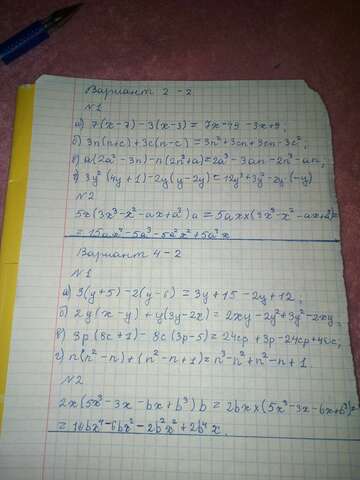 Вариант 2-2
№1
а) 7(x-7)-3(x-3)=7x-49-3x+9;
б) 3n(n+c)+3c(n-c)=3n²+3cn+3cn-3c²;
в) a(2a²-3n)-n(2n²+a)=2a³-3an-2n³-an;
г) 3y²(4y+1)-2y(y-2y)=12y³+3y²-2y(-y)
№2
5x(3x³-x²-ax+a²)a=5ax×(3x³-x²-ax+a²)=
=15ax⁴-5a³-5a²x²+5a³x
Вариант 4-2
№1
а) 3(y+5)-2(y-6)=3y+15-2y+12;
б) 2y(x-y)+y(3y-2x)=2xy-2y²+3y²-2xy;
в) 3p(8c+1)-8c(3p-5)=24cp+3p-24cp+40c;
г) n(n²-n)+(n²-n+1)=n³-n²+n²-n+1
№2
2x(5x³-3x-bx+b³)b=2bx×(5x³-3x-bx+b³)=
=10bx⁴-6bx²-2b²x²+2b⁴x.